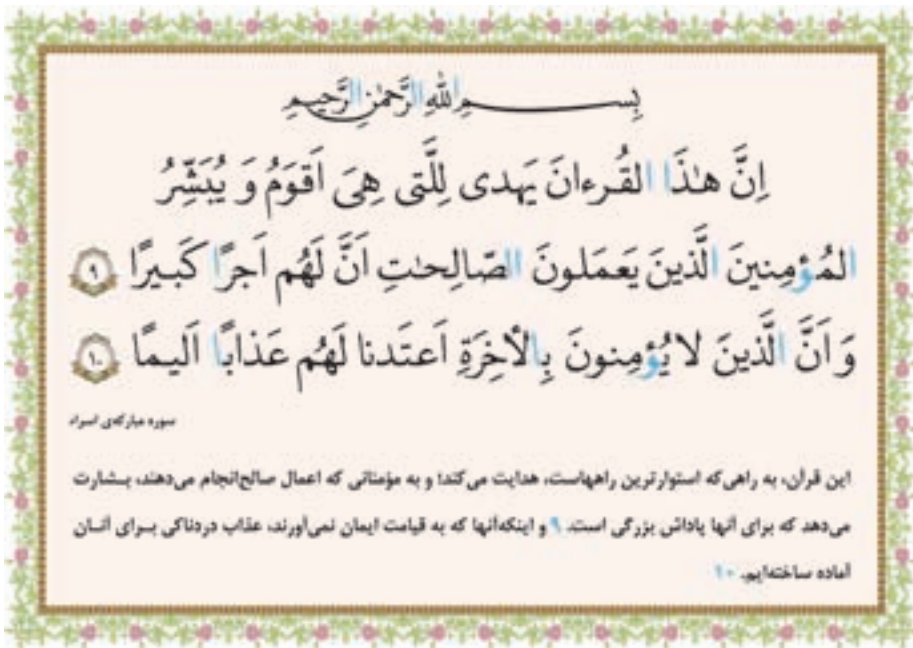 بِسمِ اللهِ الرَّحمٰنِ الرَّحیمِ
اِنَّ هٰذَا القُرءانَ یَهدی لِلَّتی هِیَ اَقوَمُ وَ یُبَشِّرُ
المُؤمِنینَ الَّذینَ یَعمَلونَ الصّالِحٰتِ اَنَّ لَهُم اَجرًا کَبیرًا ۹
وَ اَنَّ الَّذینَ لا یُؤمِنونَ بِالأخِرَةِ اَعتَدنا لَهُم عَذابًا اَلیمًا ۱۰
سوره مبارکه‌ی اسراء
این قرآن، به راهی که استوارترین راههاست، هدایت می‌کند؛ و به مؤمنانی که اعمال صالح انجام می‌دهند، بـشارت
می‌دهد که برای آنها پاداش بزرگی است. ۹ و اینکه آنها که به قیامت ایمان نمی‌آورند، عذاب دردناکی بـرای آنـان
آماده ساخته‌ایم. ۱۰